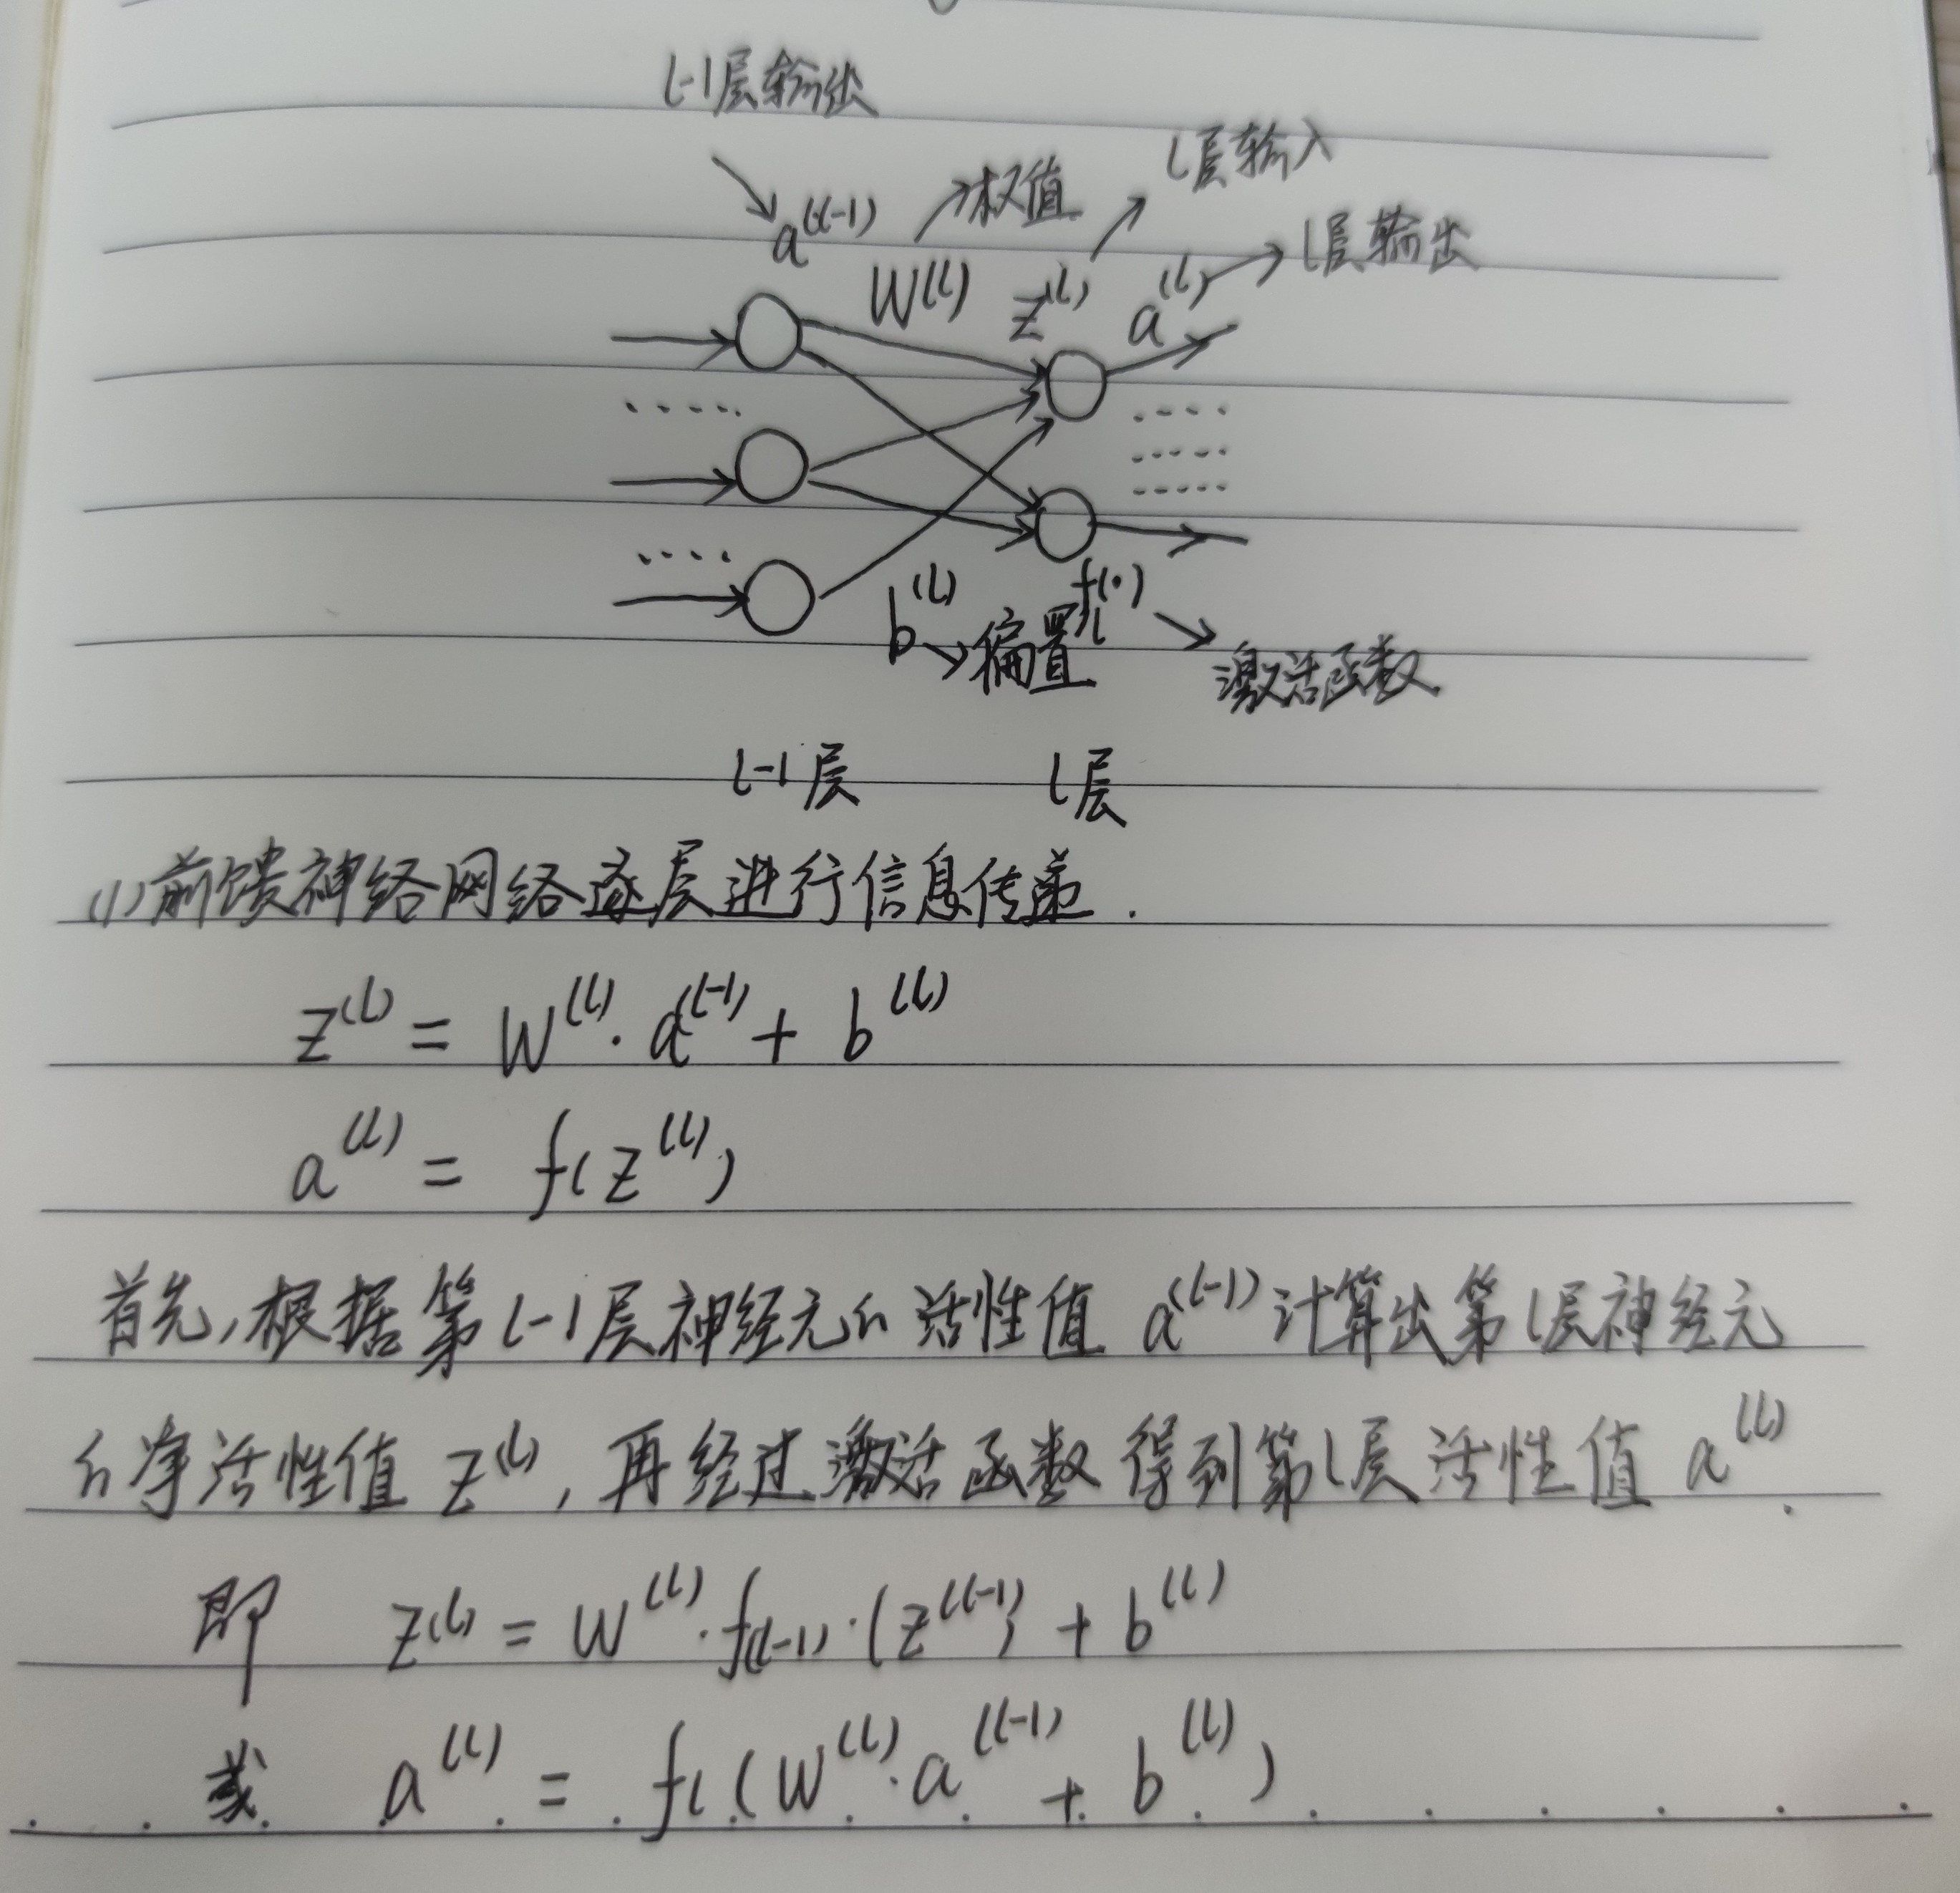 l-1层输出
l层输入
权值
l层输出
a^(l-1)
W^(l)
z^(l)
a^(l)
b^(l)
偏置
f_l(·)
激活函数
l-1层
l层
(1)前馈神经网络逐层进行信息传递.
z^(l) = W^(l)·a^(l-1) + b^(l)
a^(l) = f(z^(l))
首先,根据第l-1层神经元的活性值 a^(l-1)计算出第l层神经元
的净活性值 z^(l),再经过激活函数得到第l层活性值 a^(l).
即 z^(l) = W^(l)·f_(l-1)·(z^(l-1)) + b^(l)
或 a^(l) = f_l(W^(l)·a^(l-1) + b^(l))